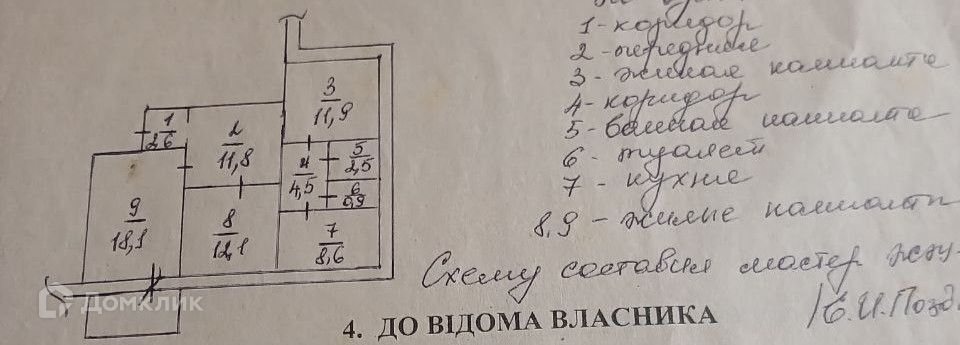 1 - коридор
2 - передняя
3 - жилая комната
4 - коридор
5 - ванная комната
6 - туалет
7 - кухня
8,9 - жилые комнаты
Схему составил мастер
/Е.И.Позд.
1
2,6
2
11,8
3
11,9
4
4,5
5
2,5
6
0,9
7
8,6
8
12,1
9
18,1
Домклик
4. ДО ВІДОМА ВЛАСНИКА